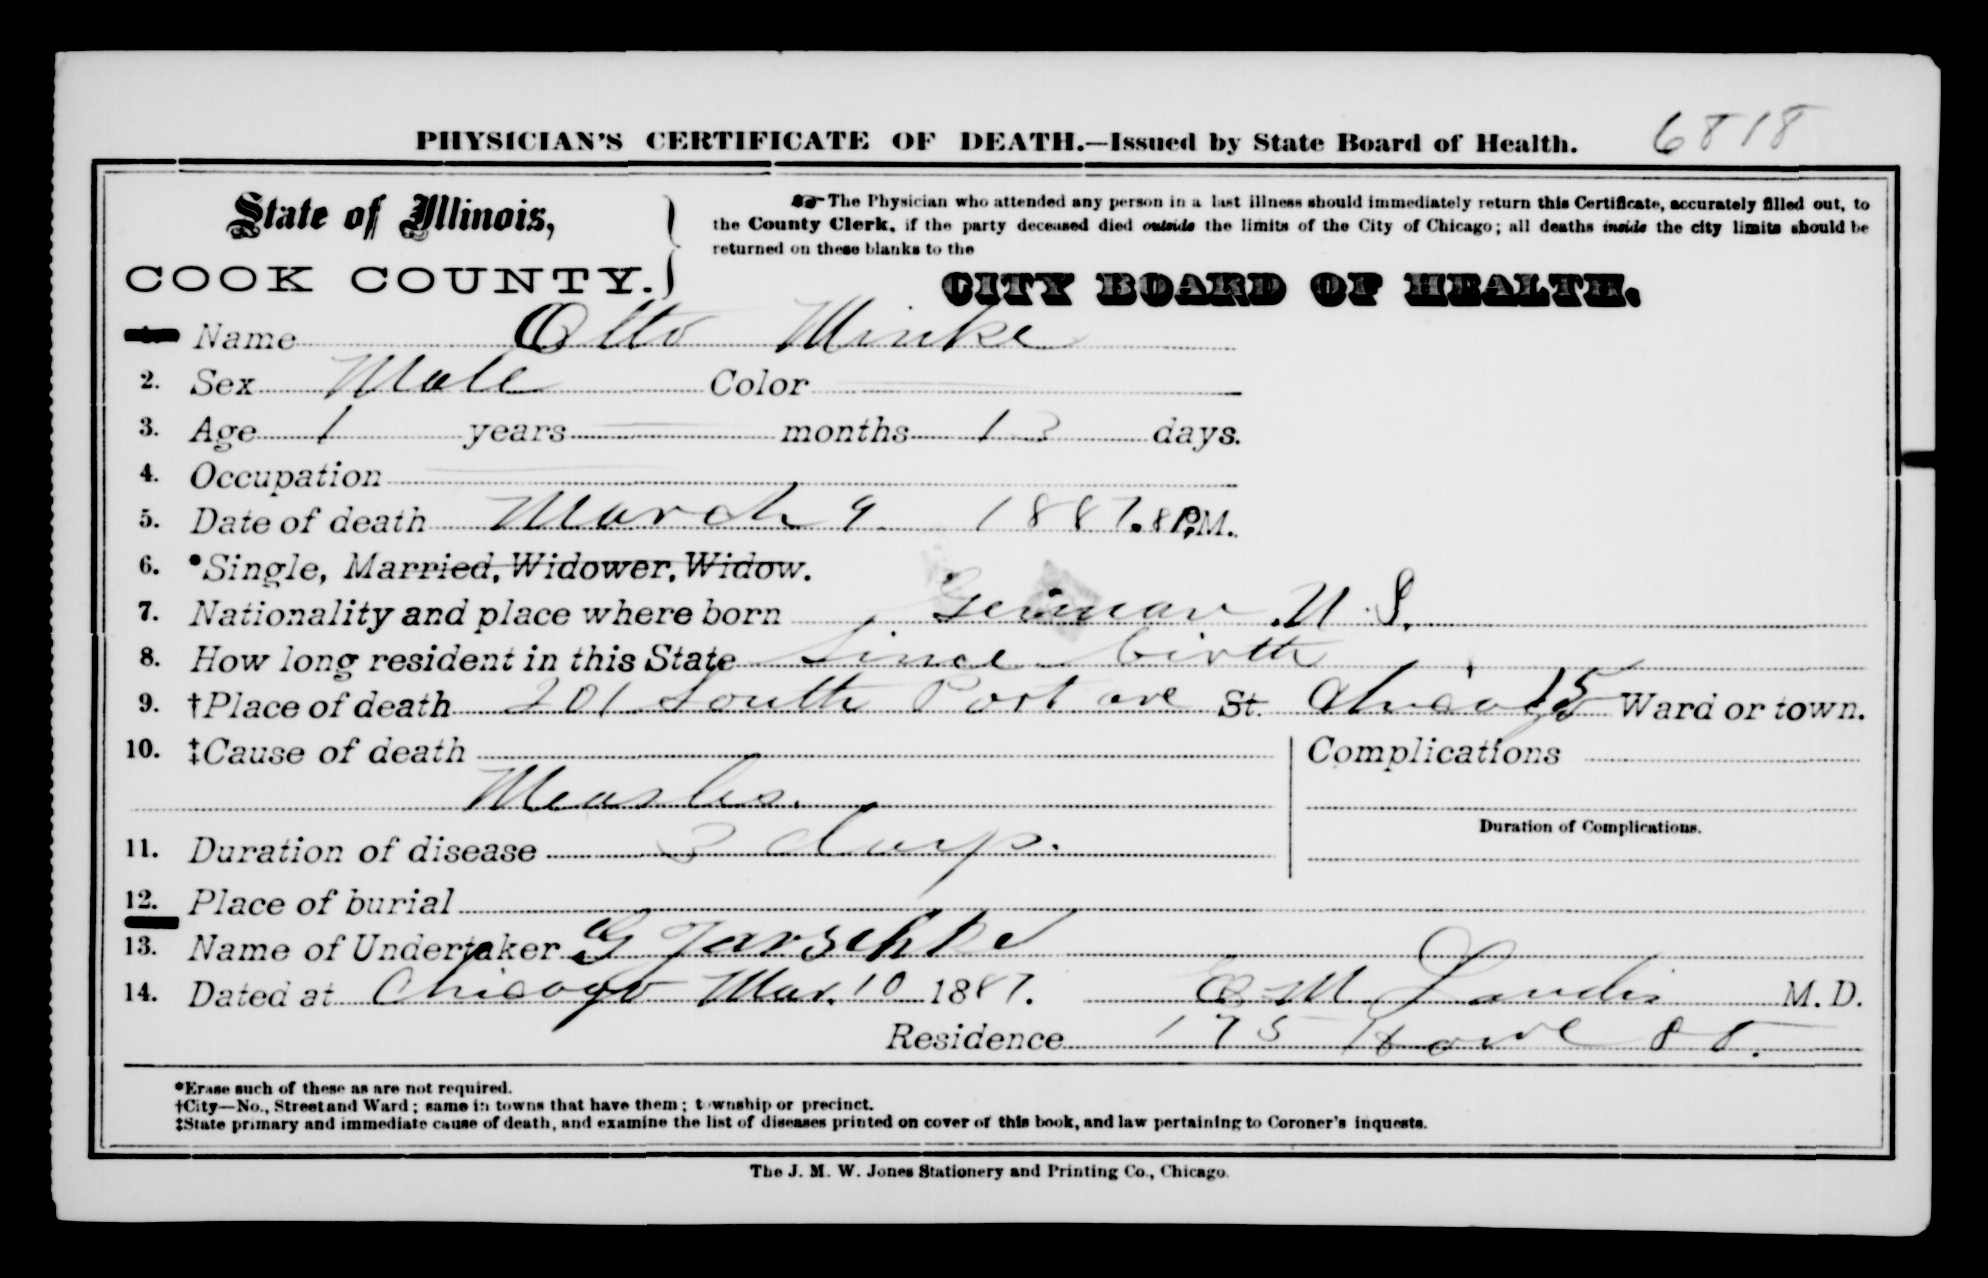 6818
PHYSICIAN'S CERTIFICATE OF DEATH.—Issued by State Board of Health.
State of Illinois,
COOK COUNTY.
The Physician who attended any person in a last illness should immediately return this Certificate, accurately filled out, to
the County Clerk, if the party deceased died outside the limits of the City of Chicago; all deaths inside the city limits should be
returned on these blanks to the
CITY BOARD OF HEALTH.
1. Name Otto Minke
2. Sex Male Color
3. Age 1 years months 13 days.
4. Occupation
5. Date of death March 9 1887. 8 P.M.
6. *Single, Married, Widower, Widow.
7. Nationality and place where born German U.S.
8. How long resident in this State Since birth
9. †Place of death 201 South Port ave St. Chicago 15 Ward or town.
10. ‡Cause of death Complications
Measles.
Duration of Complications.
11. Duration of disease 3 days.
12. Place of burial
13. Name of Undertaker G Jarschke
14. Dated at Chicago Mar. 10 1887. E M Landis M.D.
Residence 175 Howe St.
*Erase such of these as are not required.
†City—No., Street and Ward; same in towns that have them; township or precinct.
‡State primary and immediate cause of death, and examine the list of diseases printed on cover of this book, and law pertaining to Coroner's inquests.
The J. M. W. Jones Stationery and Printing Co., Chicago.